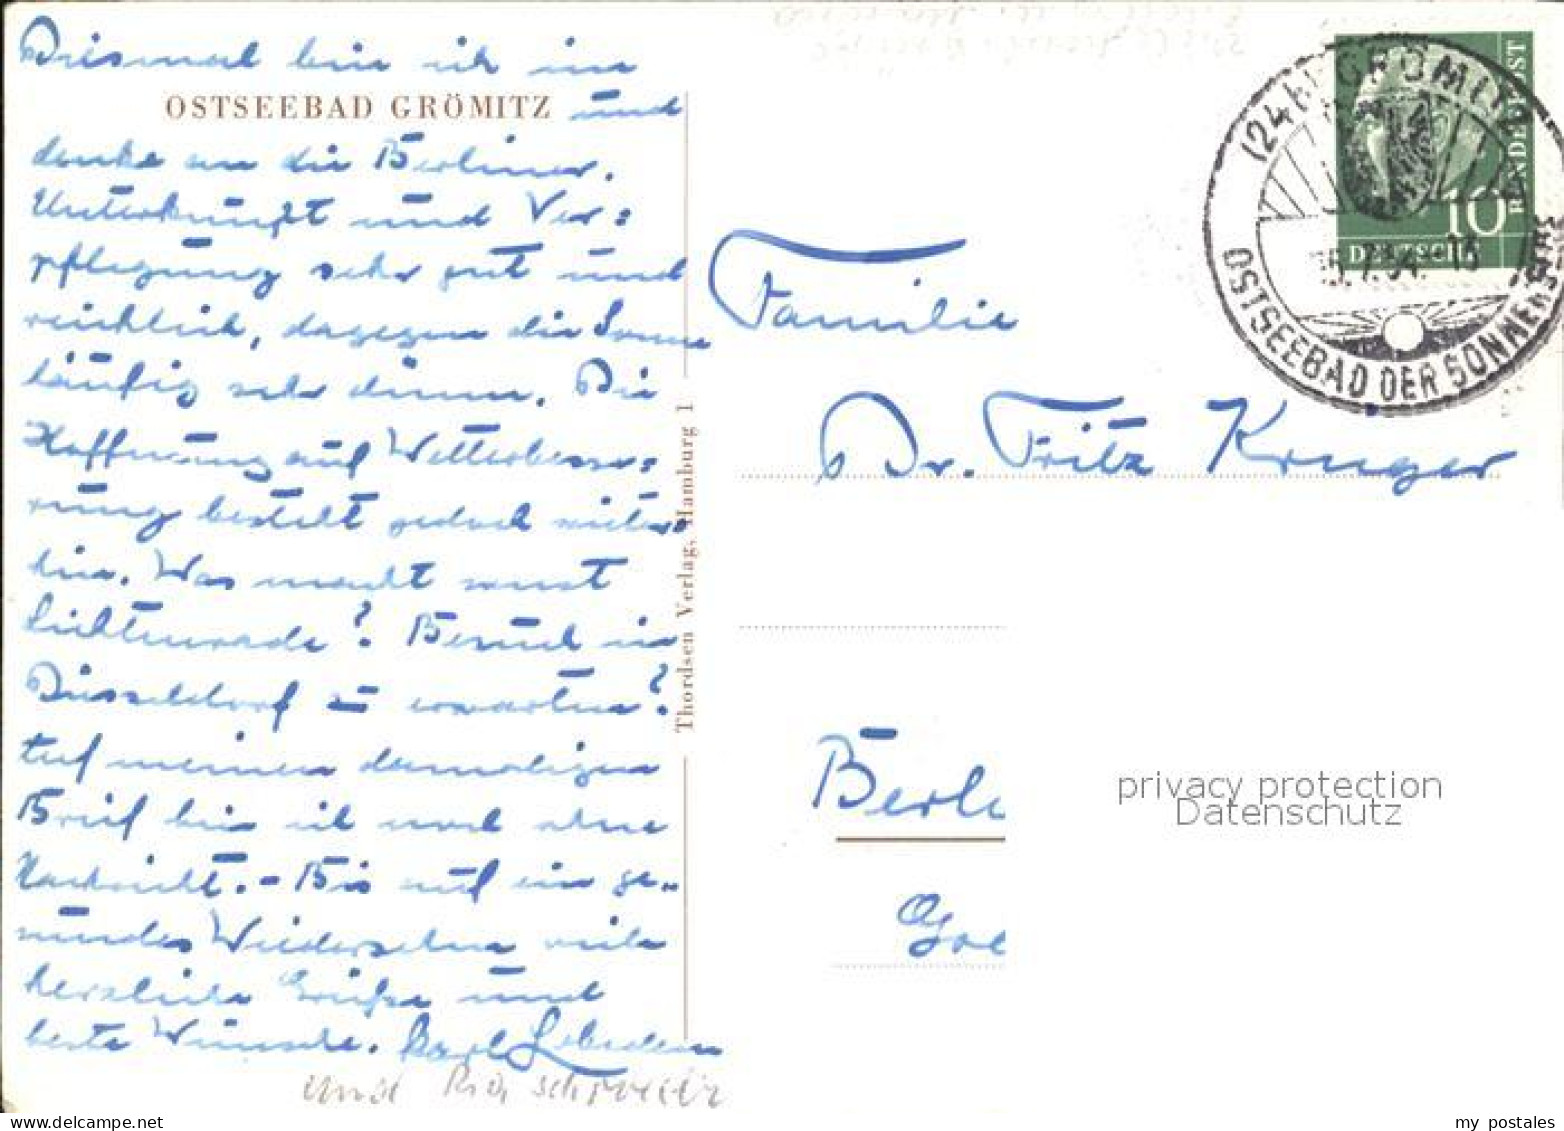 Diesmal bin ich in
OSTSEEBAD GRÖMITZ
und
denke an die Berliner.
Unterkunft und Ver=
pflegung sehr gut und
reichlich, dagegen die Sonne
häufig sehr dünn. Die
Hoffnung auf Wetterbesse=
rung besteht jedoch weiter=
hin. Was macht sonst
Lichtenrade? Besuch in
Düsseldorf zu erwarten?
Auf meinen damaligen
Brief bin ich noch ohne
Nachricht. - Bis auf ein ge=
sundes Wiedersehen viele
herzliche Grüße und
beste Wünsche. Karl
und
Thordsen Verlag, Hamburg 1
(24b) GRÖMITZ
OSTSEEBAD DER SONNENSEITE
5.7.54.-15
DEUTSCHE
BUNDESPOST
10
Familie
Dr. Fritz Kruger
Berl
Goe
privacy protection
Datenschutz
my postales